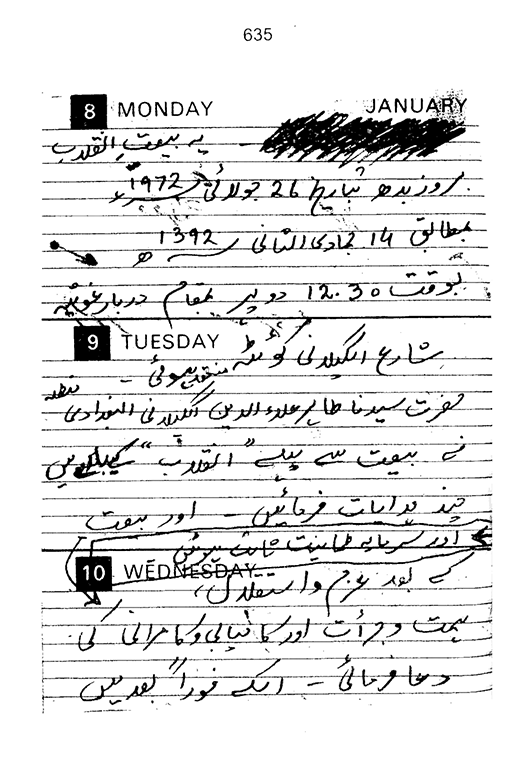 635
8 MONDAY JANUARY
یہ بیعتِ القلاب
روز بدھ بتاریخ 26 جولائی 1972ء
بمطابق 14 جمادی الثانی 1392ھ
بوقت 12.30 دوپہر بمقام دربار غوثیہ
9 TUESDAY
شارع الگیلانی کوئٹہ منعقد ہوئی -
حضرت سیدنا طاہر علاء الدین الگیلانی البغدادی مدظلہ
نے بیعت سے پہلے "القلاب" کیلئے ہمیں
چند ہدایات فرمائیں - اور بیعت
اور سرمایہ طمانیت ثابت ہوئیں
10 WEDNESDAY
کے بعد عزم و استقلال،
ہمت و جرأت اور کامیابی و کامرانی کی
دعا فرمائی - اسکے فوراً بعد میں